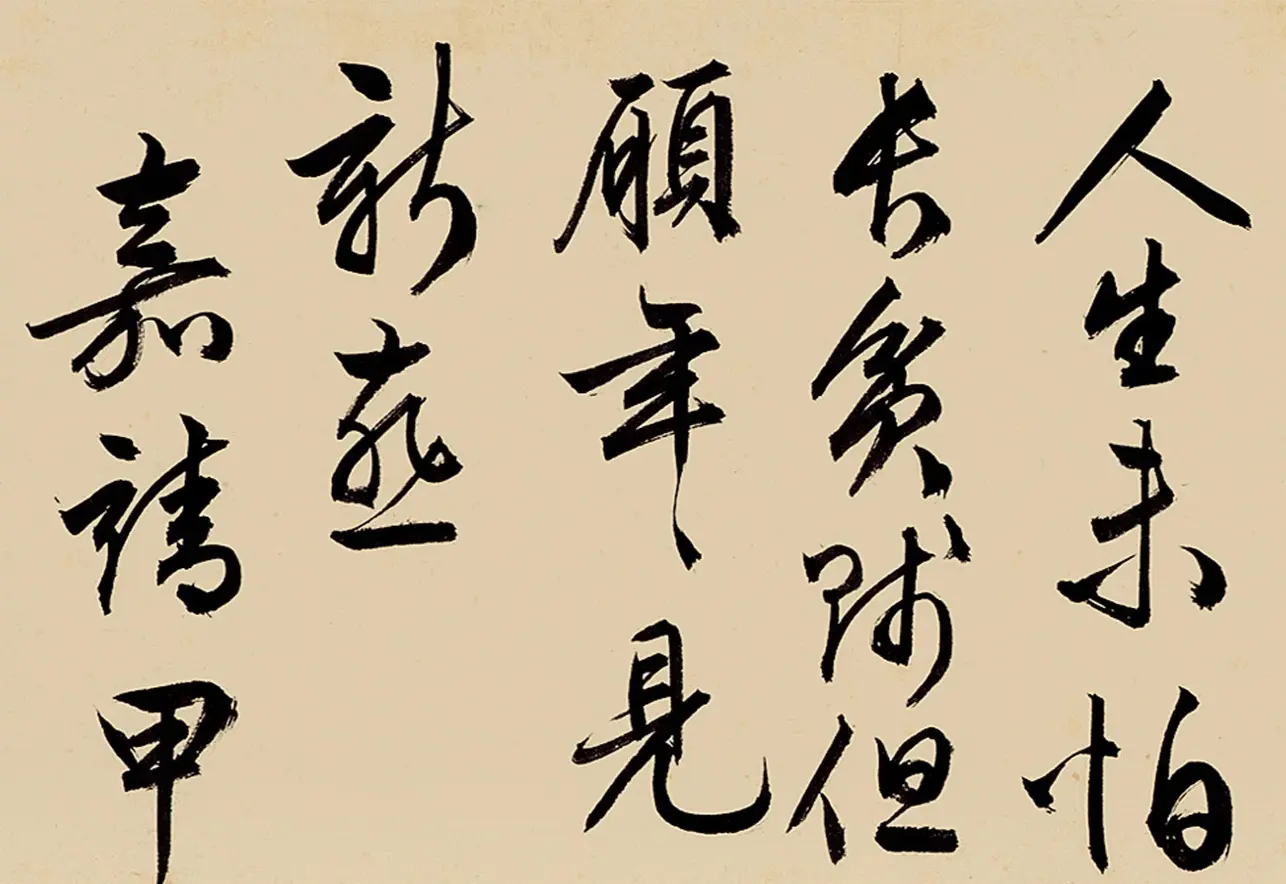 人生未怕
長貧賤但
願年年見
新燕
嘉靖甲